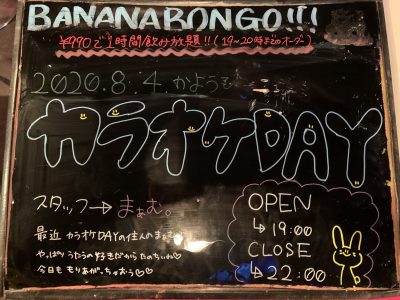 BANANABONGO!!!
¥990で1時間飲み放題!!(19~20時までのオーダー)
2020.8.4.かようび
カラオケDAY
スタッフ→まぁむ。
最近 カラオケDAYの住人のまぁむ
やっぱりうたうの好きだからたのちぃね♡
今日も もりあがっちゃおう♡♡
OPEN
↳19:00
CLOSE
↳22:00